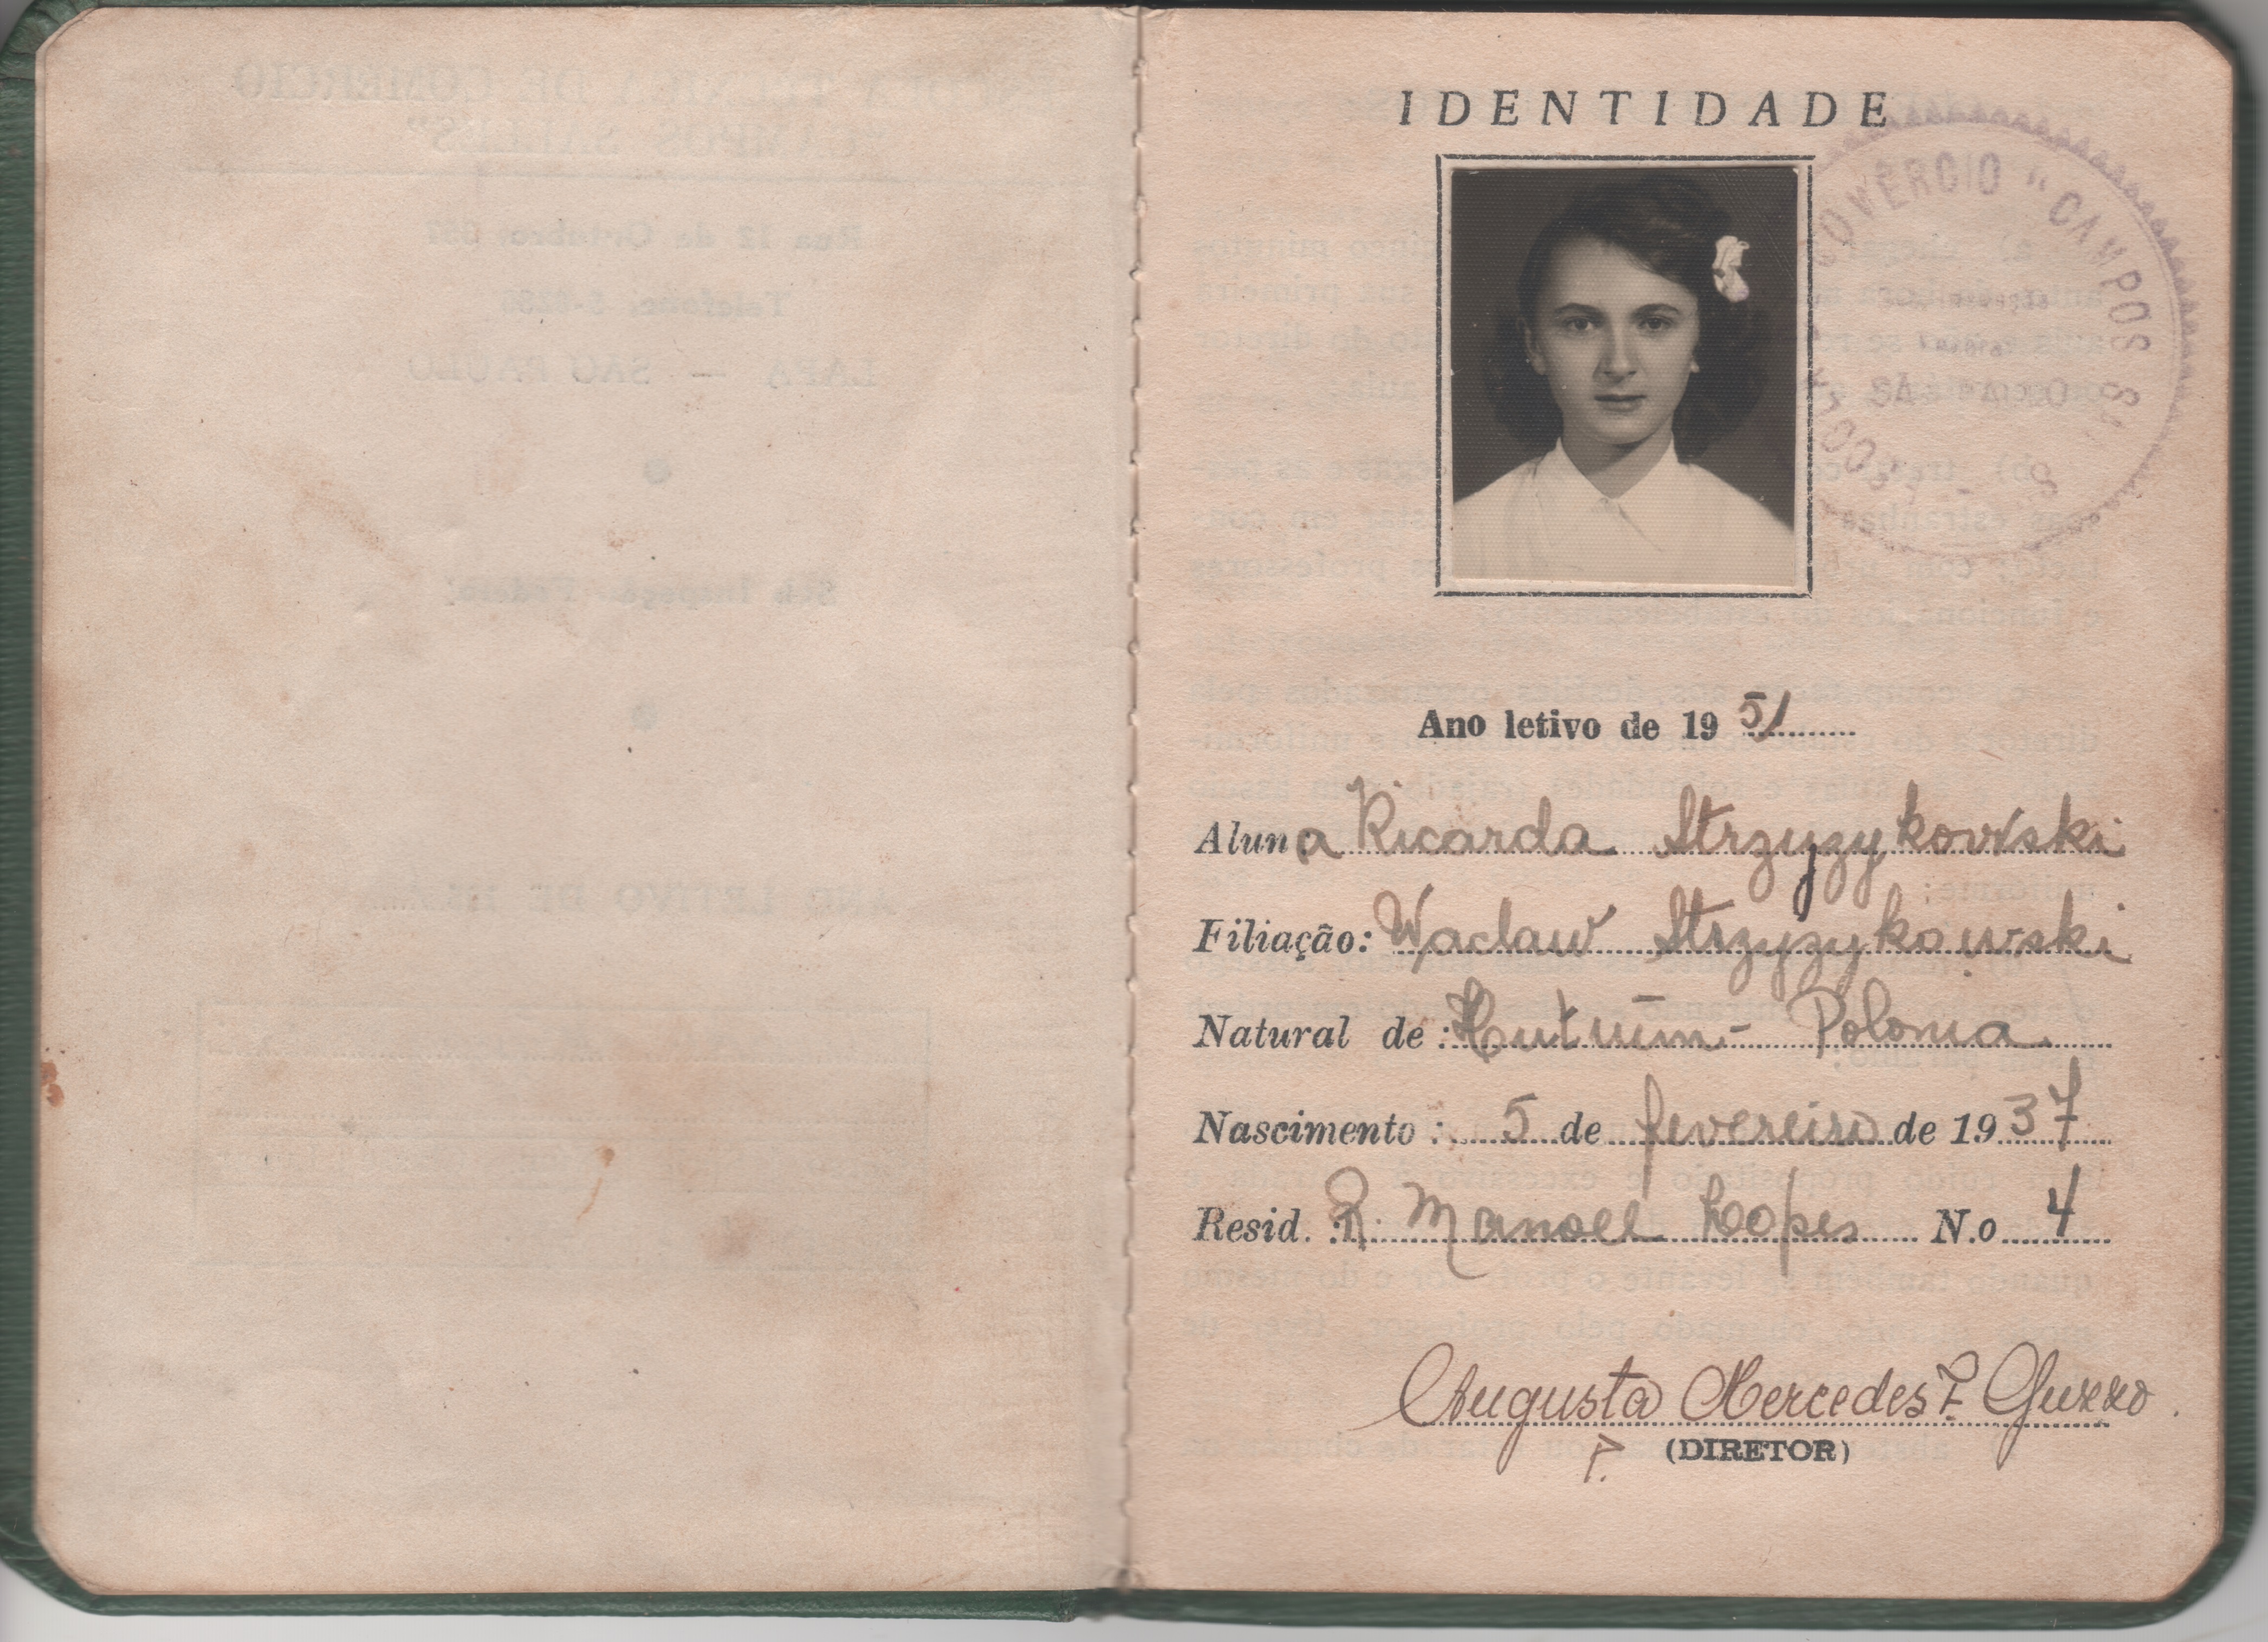 IDENTIDADE
COMERCIO "CAMPOS
Ano letivo de 19 51
Aluna Ricarda Strzyzykowski
Filiação: Waclaw Strzyzykowski
Natural de: Polonia
Nascimento: 5 de fevereiro de 1937
Resid.: R. Manoel Lopes N.o 4
Augusta Mercedes P. Guzzo
P. (DIRETOR)